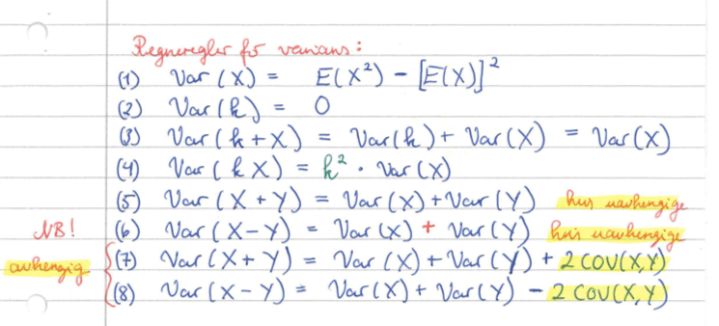 Regneregler for varians:
(1) Var(X) = E(X²) − [E(X)]²
(2) Var(k) = 0
(3) Var(k+X) = Var(k) + Var(X) = Var(X)
(4) Var(kX) = k² · Var(X)
(5) Var(X+Y) = Var(X) + Var(Y) hvis uavhengige
NB! (6) Var(X−Y) = Var(X) + Var(Y) hvis uavhengige
avhengig (7) Var(X+Y) = Var(X) + Var(Y) + 2COV(X,Y)
(8) Var(X−Y) = Var(X) + Var(Y) − 2COV(X,Y)